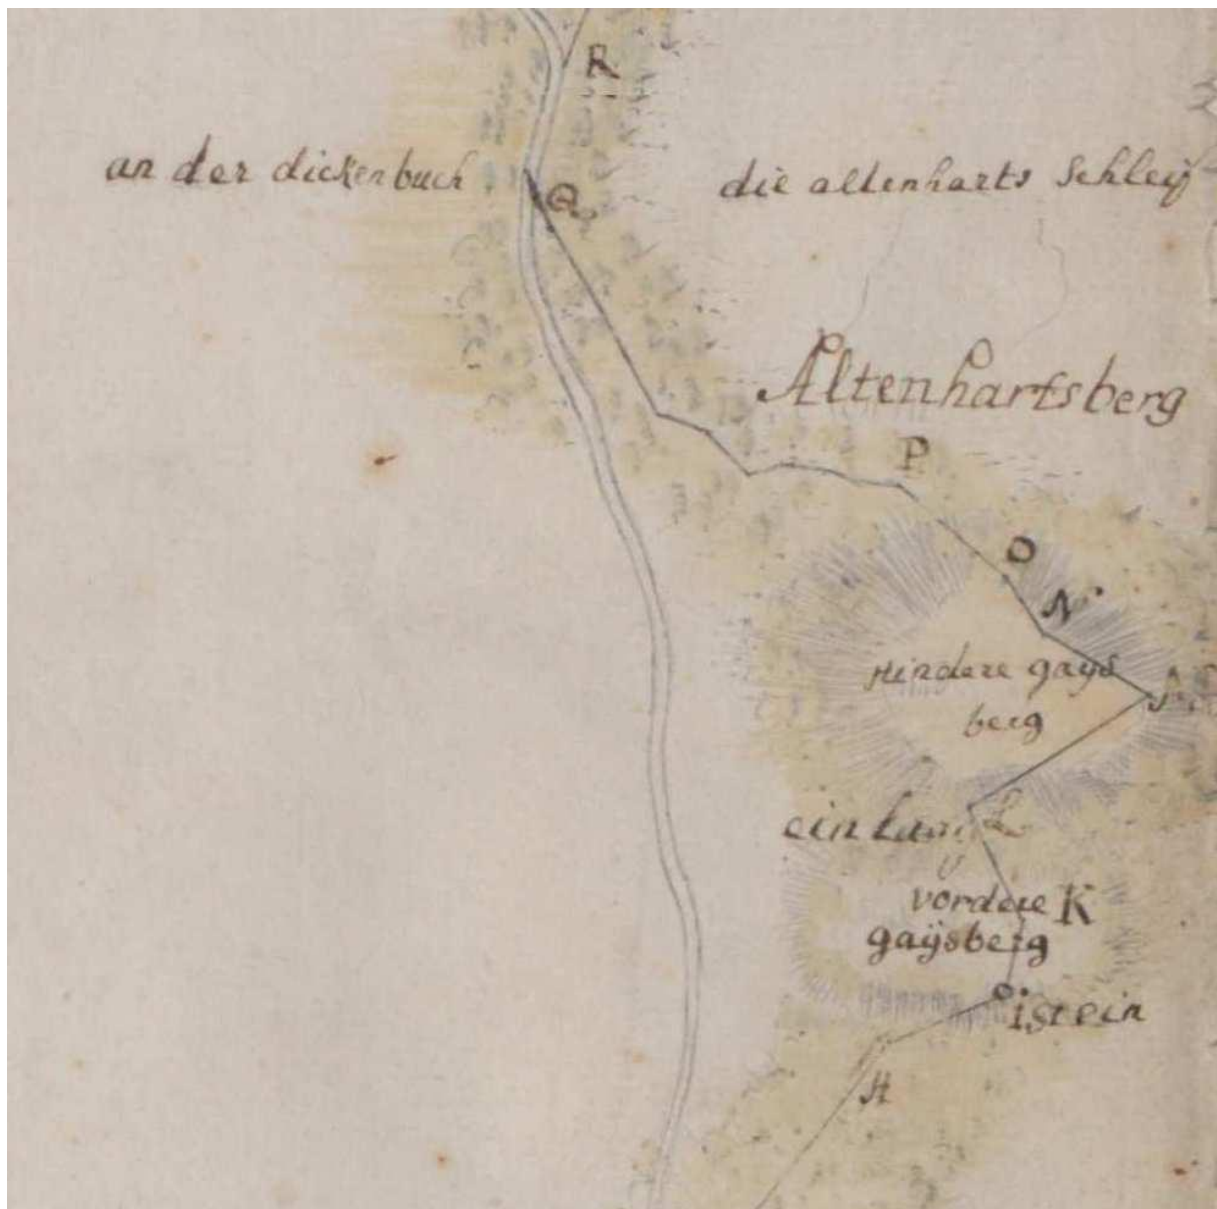 R
an der dickenbuch
Q
die altenharts Schleÿ
Altenhartsberg
P
O
N
Hindere gaÿs
berg
ein
L
vordere
K
gaÿsberg
i stein
H